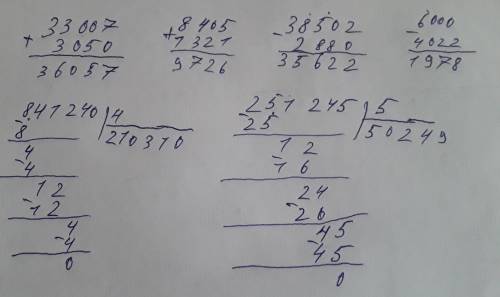 33007 8405 38502 6000
+ 3050 + 1321 - 2880 - 4022
36057 9726 35622 1978
- 841240 4 - 251245 5
8 210310 25 50249
4 12
- 4 - 16
12 24
- 12 - 26
4 45
- 4 - 45
0 0